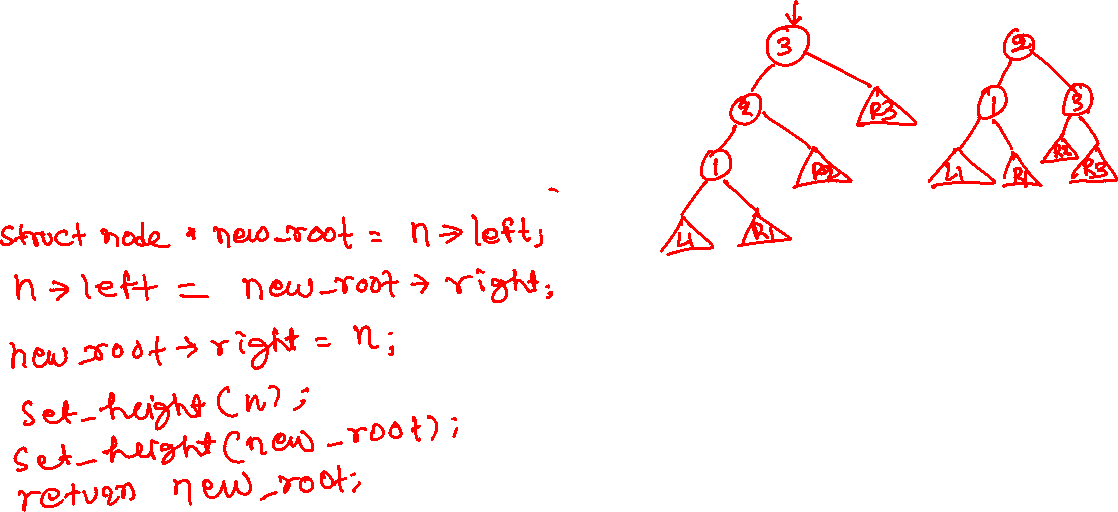 3
2
2
1
3
R3
1
R2
L1
R1
R2
R3
L1
R1
struct node * new_root = n->left;
n->left = new_root->right;
new_root->right = n;
set_height(n);
set_height(new_root);
return new_root;